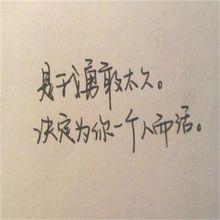 是我勇敢太久。
决定为你一个人而活。